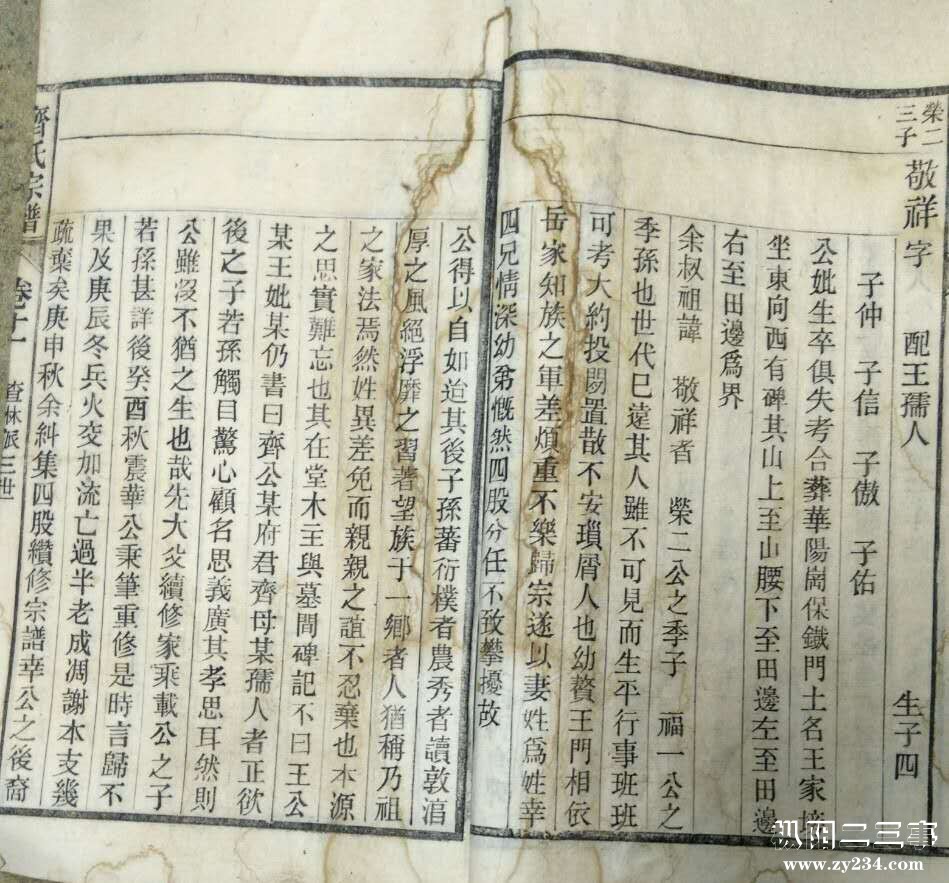 榮二
三子
敬祥 字 配王孺人 生子四
子仲 子信 子傲 子佑
公妣生卒俱失考合葬華陽崗保鐵門土名王家
坐東向西有碑其山上至山腰下至田邊左至田邊
右至田邊爲界
余叔祖諱 敬祥者 榮二公之季子 福一公之
季孫也世代已遠其人雖不可見而生平行事班班
可考大約投閒置散不安瑣屑人也幼贅王門相依
岳家知族之軍差煩重不樂歸宗遂以妻姓爲姓幸
四兄情深幼弟慨然四股分任不致攀擾故
公得以自如迨其後子孫蕃衍樸者農秀者讀敦
厚之風絕浮靡之習著望族于一鄉者人猶稱乃祖
之家法焉然姓異差免而親親之誼不忍棄也本源
之思實難忘也其在堂木主與墓間碑記不曰王公
某王妣某仍書曰齊公某府君齊母某孺人者正欲
後之子若孫觸目驚心顧名思義廣其孝思耳然則
公雖沒不猶之生也哉先大父續修家乘載公之子
若孫甚詳後癸酉秋震華公秉筆重修是時言歸不
果及庚辰冬兵火交加流亡過半老成凋謝本支幾
疏棄矣庚申秋余糾集四股纘修宗譜幸公之後裔
齊氏宗譜 卷十一 查林派三世
枞阳二三事
www.zy234.com